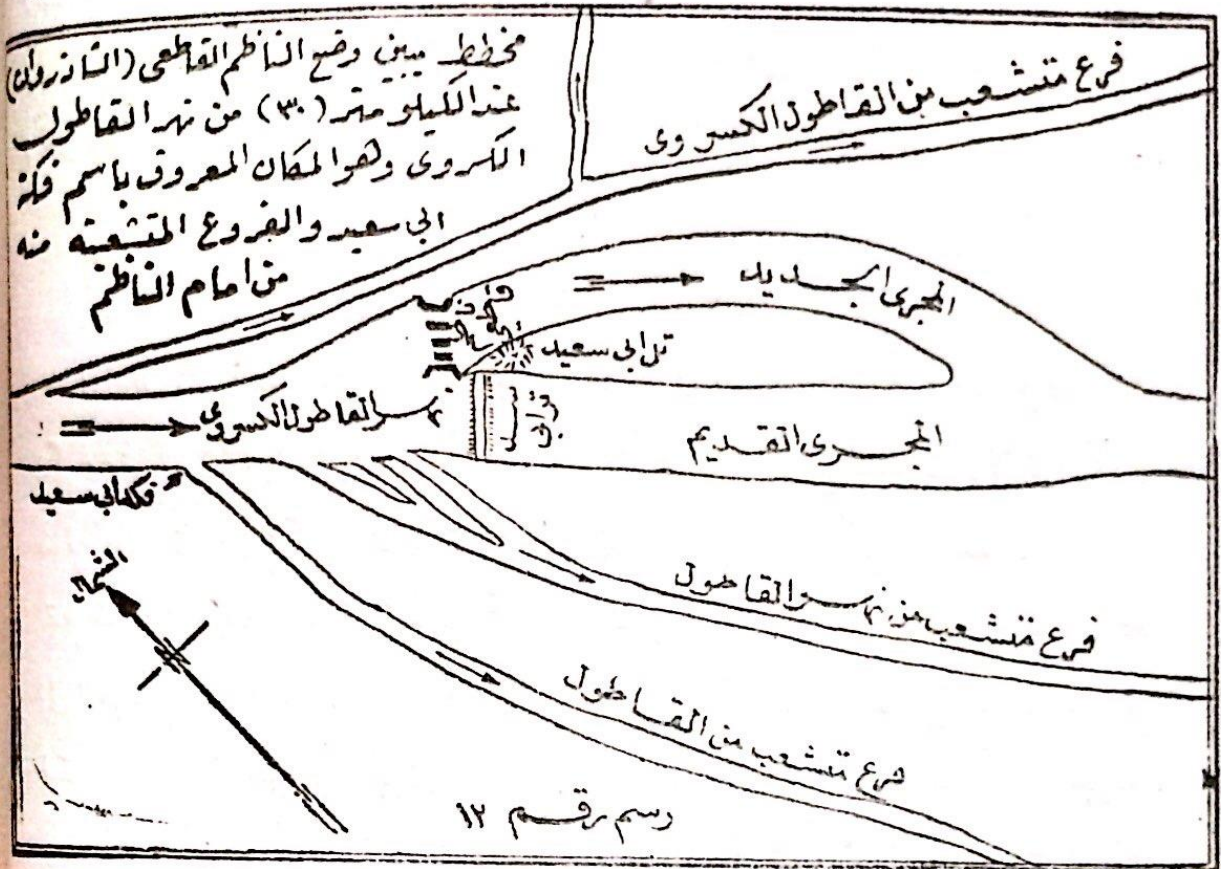 مخطط يبين وضع الناظم القاطعي (الشاذروان)
عند الكيلو متر (٣٠) من نهر القاطول
الكسروى وهو المكان المعروف باسم فكة
ابي سعيد والفروع المتشعبته منه
من امام الناظم
فرع متشعب من القاطول الكسروى
المجرى الجديد
تل ابي سعيد
نهر القاطول الكسروى
سد ترابي
المجرى القديم
فكة ابي سعيد
الشمال
فرع متشعب من نهر القاطول
فرع متشعب من القاطول
رسم رقم ١٢